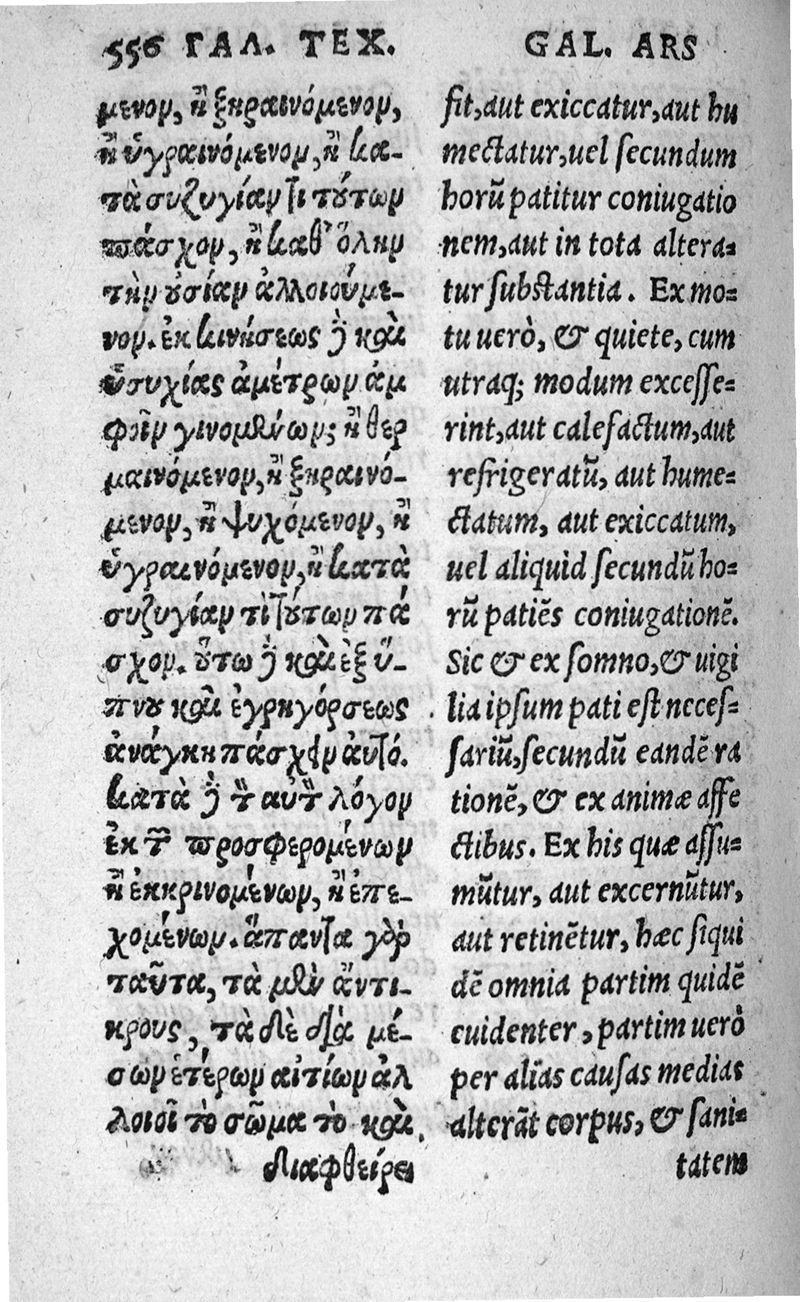 556 ΓΑΛ. ΤΕΧ.
μενον, ἢ ξηραινόμενον,
ἢ ὑγραινόμενον, ἢ κα-
τὰ συζυγίαν τι τούτων
πάσχον, ἢ καθ' ὅλην
τὴν οὐσίαν ἀλλοιούμε-
νον. ἐκ κινήσεως δὲ καὶ
ἡσυχίας ἀμέτρων ἀμ
φοῖν γινομένων; ἢ θερ
μαινόμενον, ἢ ξηραινό-
μενον, ἢ ψυχόμενον, ἢ
ὑγραινόμενον, ἢ κατὰ
συζυγίαν τὶ τούτων πά
σχον. οὕτω δὲ καὶ ἐξ ὕ-
πνου καὶ ἐγρηγόρσεως
ἀνάγκη πάσχειν αὐτό.
κατὰ δὲ τὸν αὐτὸν λόγον
ἐκ τῶν προσφερομένων
ἢ ἐκκρινομένων, ἢ ἐπε-
χομένων. ἅπαντα γὰρ
ταῦτα, τὰ μὲν ἄντι-
κρους, τὰ δὲ διὰ μέ-
σων ἑτέρων αἰτίων ἀλ
λοιοῖ τὸ σῶμα τὸ καὶ
διαφθείρει
GAL. ARS
fit, aut exiccatur, aut hu
mectatur, uel secundum
horũ patitur coniugatio
nem, aut in tota altera-
tur substantia. Ex mo-
tu uerò, & quiete, cum
utraq; modum excesse-
rint, aut calefactum, aut
refrigeratũ, aut hume-
ctatum, aut exiccatum,
uel aliquid secundũ ho-
rũ patiẽs coniugationẽ.
Sic & ex somno, & uigi
lia ipsum pati est neces-
sariũ, secundũ eandẽ ra
tionẽ, & ex animæ affe
ctibus. Ex his quæ assu-
mũtur, aut excernũtur,
aut retinẽtur, hæc siqui
dẽ omnia partim quidẽ
euidenter, partim uerò
per alias causas medias
alterãt corpus, & sani-
tatem